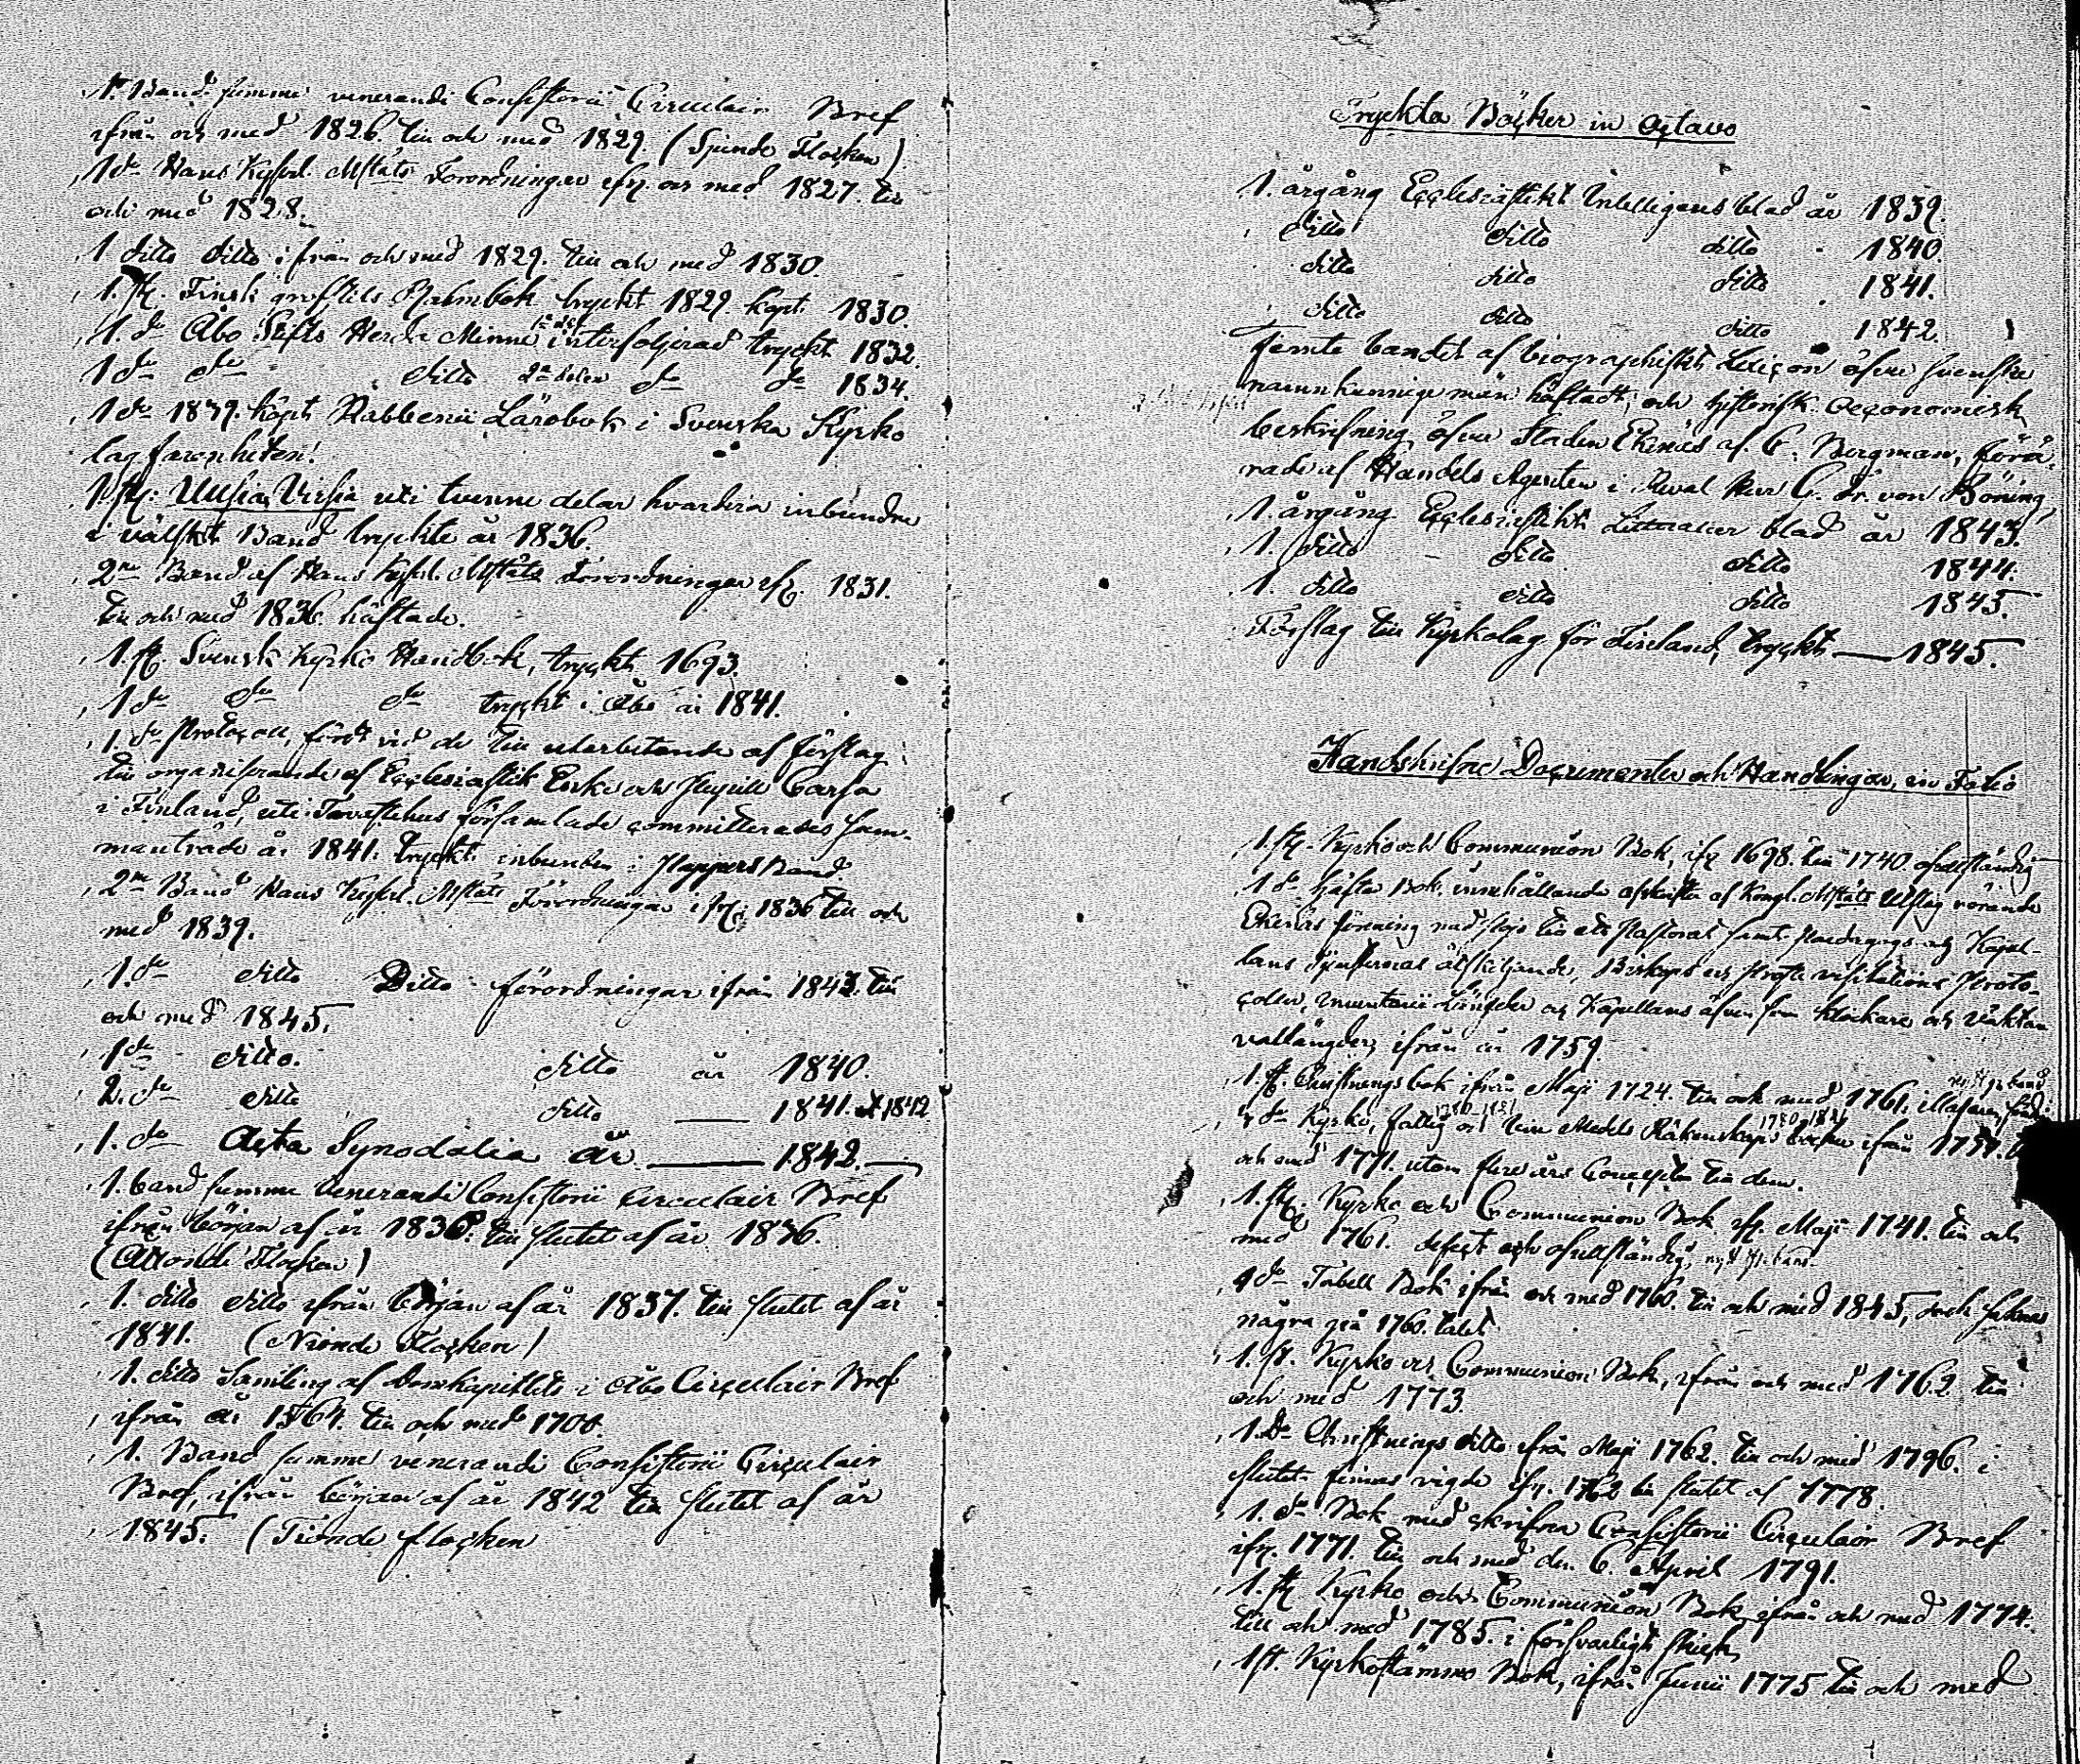 1. Band summe venerandi Consistorii Circulair Bref
ifrån och med 1826. till och med 1829. (Sjunde Flocken)
1 do Hans Kejserl. Mjtäts Förordningar ifr. och med 1827. till
och med 1828.
1 ditto ditto ifrån och med 1829. till och med 1830.
1. st. Finsk grofstils Psalmbok tryckt 1829. köpt 1830.
1. do Åbo Stifts Herda Minne 1a del interfolierad tryckt 1832.
1 do do ditto 2a delen do do 1834.
1 do 1839. köpt Rabbenii Lärobok i Svenska Kyrko
lagfarenheten.
1. st. Uusia Virsiä uti tvenne delar hvardera inbundne
i välskt Band tryckte år 1836.
2ne Band af Hans Kejserl. Mjtäts Förordningar ifr. 1831.
till och med 1836. häftade.
1. st. Svensk Kyrko Handbok, tryckt 1693.
1 do do do tryckt i Åbo år 1841.
1. do Protocoll, fördt vid de till utarbetande af förslag
till organiserande af Ecclesiastik Enke och Pupill Cassa
i Finland, uti Tavastehus församlade committerades sam-
manträde år 1841. tryckt inbunden i Pappers Band
2ne Band Hans Kejserl. Mjtäts Förordningar ifr. 1836 till och
med 1839.
1. do ditto Ditto förordningar ifrån 1843. till
och med 1845.
1 do ditto. ditto år 1840.
2. do ditto ditto 1841. & 1842
1. do Acta Synodalia år 1842.
1. band summe Venerandi Consistorii Circulair Bref
ifrån början af år 1830. till slutet af år 1836.
(Åttonde Flocken)
1. ditto ditto ifrån början af år 1837. till slutet af år
1841. (Nionde Flocken)
1. ditto Samling af Domkapitlets i Åbo Circulair Bref
ifrån år 1564. till och med 1700.
1. Band summe venerandi Consistorii Circulair
Bref, ifrån början af år 1842 till slutet af år
1845. (Tionde flocken
Tryckta Böcker in Octavo
1. årgång Ecclesiastikt Intelligens blad år 1839.
ditto ditto ditto 1840
ditto ditto ditto 1841.
ditto ditto ditto 1842.
Femte bandet af biographiskt Lexicon öfver svenske
namnkunnige män häftadt, och historisk Oeconomisk
beskrifning öfver staden Ekenäs af C. Bergman, förä-
rade af Handels Agenten i Reval Herr C. Fr. von Böning
1. årgång Ecclesiastikt Litteratur blad år 1843.
1. ditto ditto ditto 1844.
1. ditto ditto ditto 1845.
Förslag till Kyrkolag för Finland, tryckt 1845.
Handskrifne Documenter och Handlingar, in Folio
1. st. Kyrko och Communion Bok, ifr 1698. till 1740. ofullständig
1 do häfta Bok, innehållande afskrifter af Kongl. Mjtäts Utslag rörande
Ekenäs förening med Pojo till ett Pastorat samt Paedagogs och Kapel-
lans Tjensternas åtskiljande, Biskops och Prosta visitations Proto-
coller, Inventarii Längder och Kapellans äfven som Klockare och Väktare
vallängder, ifrån år 1759.
1. st. Christnings bok ifrån Maji 1724. till och med 1761. illa faren
do Kyrko, fattig och Medels Räkenskaps Böcker ifrån 1757.
och med 1771. utom flere års Concepter till dem.
1. st. Kyrko och Communion Bok ifr. Maji 1741. till och
med 1761. defect och ofullständig, nytt band.
4 do Tabell Bok ifrån och med 1760. till och med 1845, dock saknas
några på 1760. talet
1. st. Kyrko och Communion Bok, ifrån och med 1762. till
och med 1773.
1. do Christnings ditto ifrån Maji 1762. till och med 1796. i
slutet finnes vigde ifr. 1762 till slutet af 1778.
1. do Bok med skrifna Consistorii Circulair Bref
ifr. 1771. till och med den 6. April 1791.
1. st Kyrko och Communion Bok, ifrån och med 1774.
till och med 1785. i försvarligt skick,
1 st. Kyrkostämmo Bok, ifrån Junii 1775 till och med